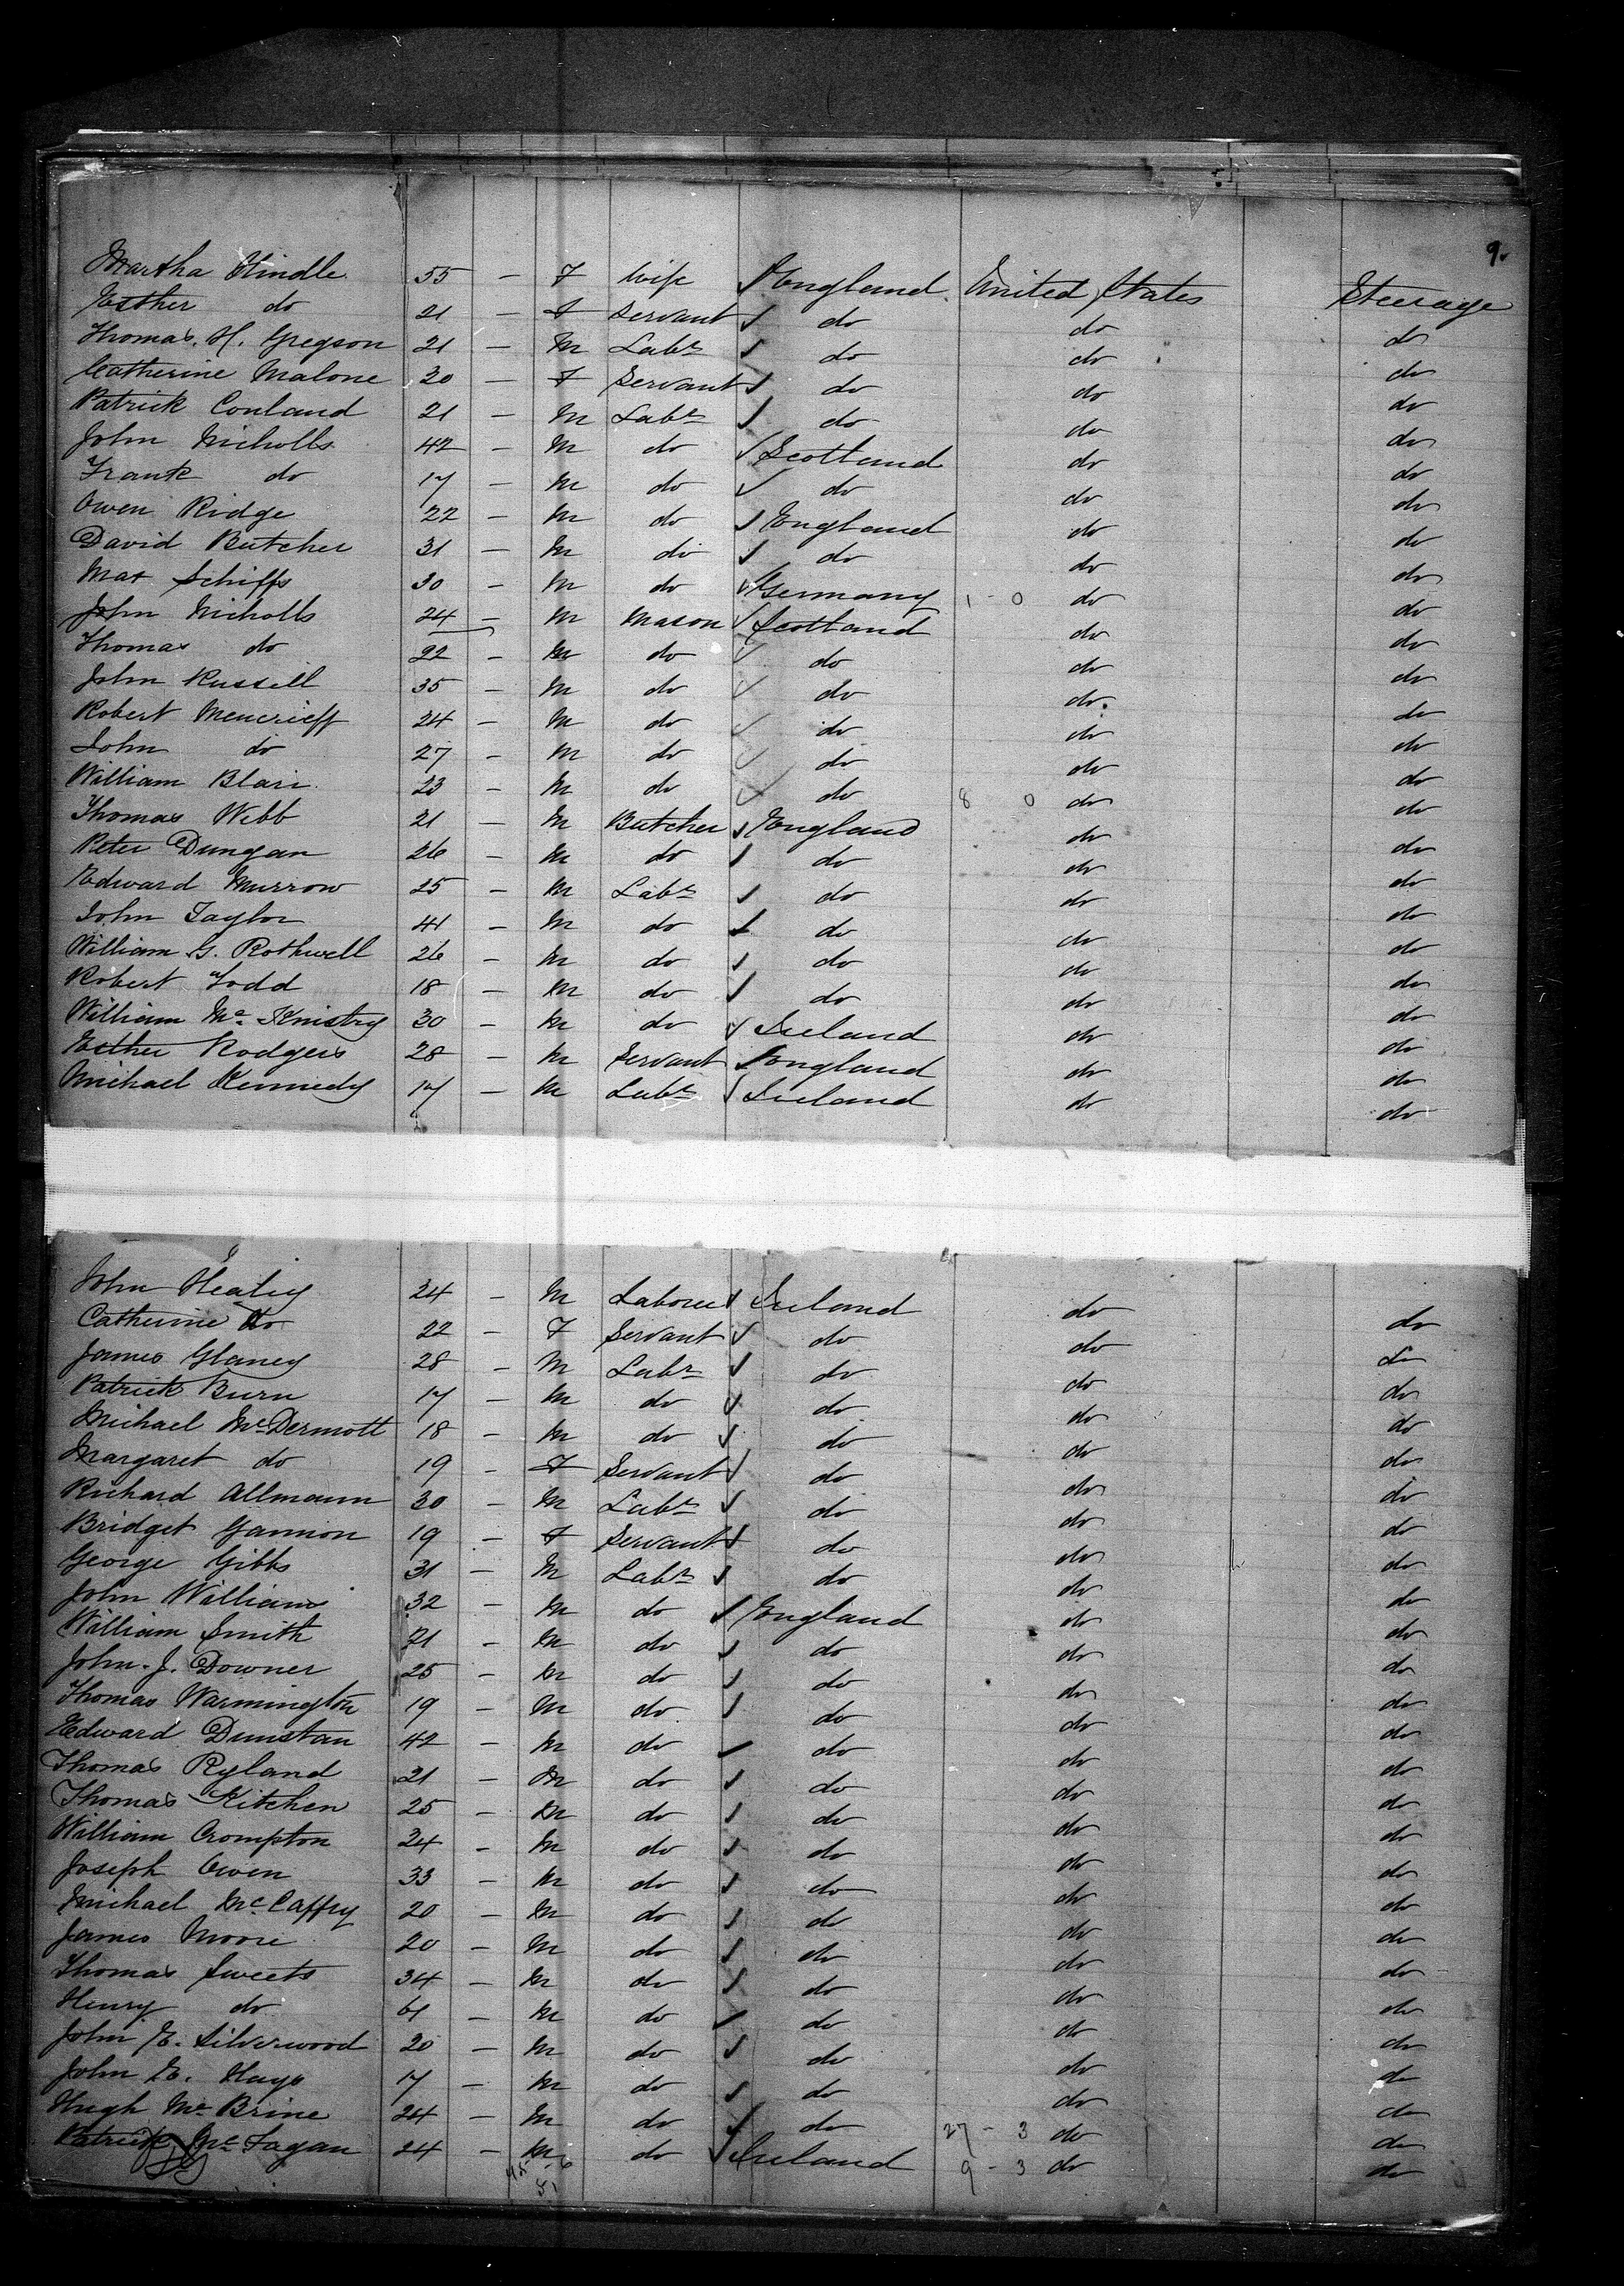 9.
Martha Hindle 55 - F Wife England United States Steerage
Esther do 21 - F Servant do do do
Thomas. H. Gregson 21 - M Labr do do do
Catherine Malone 30 - F Servant do do do
Patrick Conland 21 - M Labr do do do
John Nicholls 42 - M do Scotland do do
Frank do 17 - M do do do do
Owen Ridge 22 - M do England do do
David Butcher 31 - M do do do do
Max Schiffs 30 - M do Germany 1 - 0 do do
John Nicholls 24 - M Mason Scotland do do
Thomas do 22 - M do do do do
John Russell 35 - M do do do do
Robert Mencrieff 24 - M do do do do
John do 27 - M do do do do
William Blair 23 - M do do 8 0 do do
Thomas Webb 21 - M Butcher England do do
Peter Dungan 26 - M do do do do
Edward Murrow 25 - M Labr do do do
John Taylor 41 - M do do do do
William G. Rothwell 26 - M do do do do
Robert Todd 18 - M do do do do
William Mc Knistry 30 - M do Ireland do do
Esther Rodgers 28 - M Servant England do do
Michael Kennedy 17 - M Labr Ireland do do
John Healey 24 - M Laborer Ireland do do
Catherine do 22 - F Servant do do do
James Glaney 28 - M Labr do do do
Patrick Burn 17 - M do do do do
Michael McDermott 18 - M do do do do
Margaret do 19 - F Servant do do do
Richard Allmann 30 - M Labr do do do
Bridget Gannon 19 - F Servant do do do
George Gibbs 31 - M Labr do do do
John Williams 32 - M do England do do
William Smith 21 - M do do do do
John. J. Downer 25 - M do do do do
Thomas Warmington 19 - M do do do do
Edward Dunstan 42 - M do do do do
Thomas Ryland 21 - M do do do do
Thomas Kitchen 25 - M do do do do
William Crompton 24 - M do do do do
Joseph Owen 33 - M do do do do
Michael McCaffry 20 - M do do do do
James Moore 20 - M do do do do
Thomas Sweets 34 - M do do do do
Henry do 61 - M do do do do
John E. Silverwood 20 - M do do do do
John E. Hays 17 - M do do do do
Hugh Mc Brine 24 - M do do 27 - 3 do do
Patrick Mc Fagan 24 - M do Ireland 9 - 3 do do
45 - 6
51